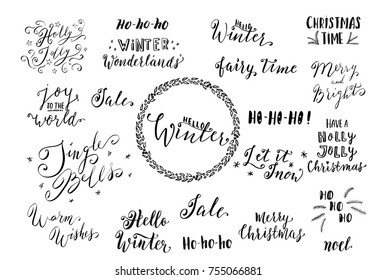 Holly
Jolly
Ho-ho-ho
WINTER
Wonderlands
HELLO
Winter
CHRISTMAS
TIME
fairy Time
Merry
and
Bright
Joy
TO THE
World
Sale
HELLO
Winter
HO-HO-HO!
HAVE A
HOLLY
JOLLY
CHRISTMAS
Jingle
Bells
Let it
Snow
Warm
Wishes
Hello
Winter
Sale
Ho-ho-ho
Merry
Christmas
HO
HO
HO
noel
shutterstock.com · 755066881